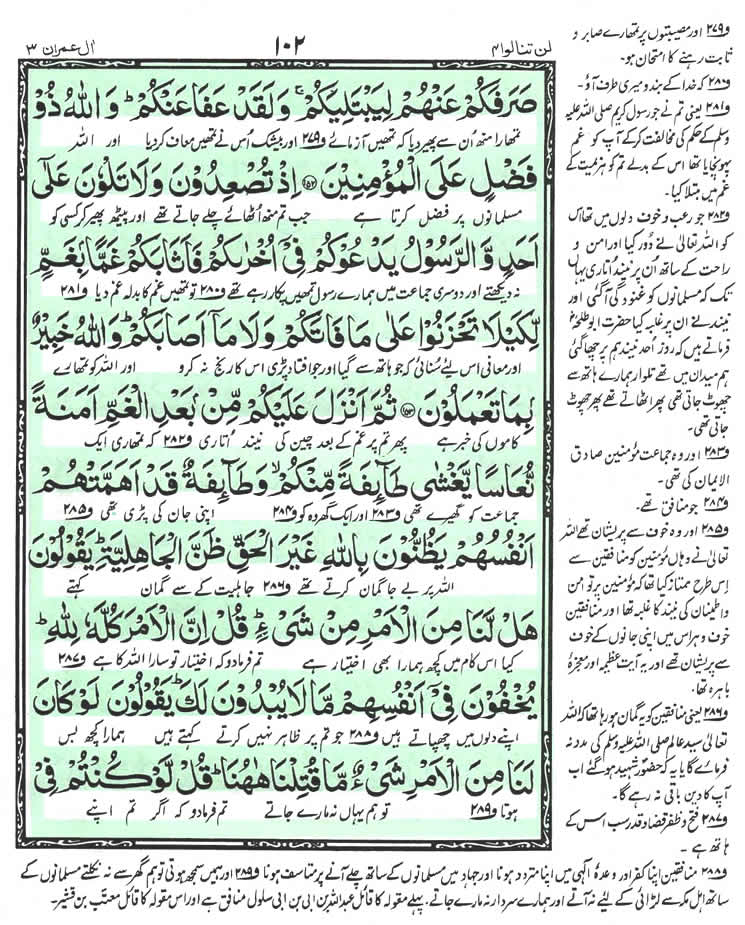 لن تنالوا ۴
۱۰۲
اٰل عمرٰن ۳
صَرَفَكُمْ عَنْهُمْ لِيَبْتَلِيَكُمْ ۚ وَلَقَدْ عَفَا عَنْكُمْ ؕ وَاللّٰهُ ذُوْ
تمھارا منھ اُن سے پھیر دیا کہ تمھیں آزمائے و۲۷۹ اور بیشک اُس نے تمھیں معاف کردیا اور اللہ
فَضْلٍ عَلَى الْمُؤْمِنِيْنَ ﴿۱۵۲﴾ اِذْ تُصْعِدُوْنَ وَلَا تَلْوٗنَ عَلٰٓى
مسلمانوں پر فضل کرتا ہے جب تم منھ اُٹھائے چلے جاتے تھے اور پیٹھ پھیر کر کسی کو
اَحَدٍ وَّالرَّسُوْلُ يَدْعُوْكُمْ فِيْٓ اُخْرٰىكُمْ فَاَثَابَكُمْ غَمًّۢا بِغَمٍّ
نہ دیکھتے اور دوسری جماعت میں ہمارے رسول تمھیں پکار رہے تھے و۲۸۰ تو تمھیں غم کا بدلہ غم دیا و۲۸۱
لِّكَيْلَا تَحْزَنُوْا عَلٰى مَا فَاتَكُمْ وَلَا مَآ اَصَابَكُمْ ؕ وَاللّٰهُ خَبِيْرٌۢ
اور معافی اس لئے سُنائی کہ جو ہاتھ سے گیا اور جو افتاد پڑی اس کا رنج نہ کرو اور اللہ کو تمھارے
بِمَا تَعْمَلُوْنَ ﴿۱۵۳﴾ ثُمَّ اَنْزَلَ عَلَيْكُمْ مِّنْۢ بَعْدِ الْغَمِّ اَمَنَةً
کاموں کی خبر ہے پھر تم پر غم کے بعد چین کی نیند اُتاری و۲۸۲ کہ تمھاری ایک
نُّعَاسًا يَّغْشٰى طَآئِفَةً مِّنْكُمْ ۙ وَطَآئِفَةٌ قَدْ اَهَمَّتْهُمْ
جماعت کو گھیرے تھی و۲۸۳ اور ایک گروہ کو و۲۸۴ اپنی جان کی پڑی تھی و۲۸۵
اَنْفُسُهُمْ يَظُنُّوْنَ بِاللّٰهِ غَيْرَ الْحَقِّ ظَنَّ الْجَاهِلِيَّةِ ؕ يَقُوْلُوْنَ
اللہ پر بے جا گمان کرتے تھے و۲۸۶ جاہلیت کے سے گمان کہتے
هَلْ لَّنَا مِنَ الْاَمْرِ مِنْ شَيْءٍ ؕ قُلْ اِنَّ الْاَمْرَ كُلَّهٗ لِلّٰهِ ؕ
کیا اس کام میں کچھ ہمارا بھی اختیار ہے تم فرمادو کہ اختیار تو سارا اللہ کا ہے و۲۸۷
يُخْفُوْنَ فِيْٓ اَنْفُسِهِمْ مَّا لَا يُبْدُوْنَ لَكَ ؕ يَقُوْلُوْنَ لَوْ كَانَ
اپنے دلوں میں چھپاتے ہیں و۲۸۸ جو تم پر ظاہر نہیں کرتے کہتے ہیں ہمارا کچھ بس
لَنَا مِنَ الْاَمْرِ شَيْءٌ مَّا قُتِلْنَا هٰهُنَا ؕ قُلْ لَّوْ كُنْتُمْ فِيْ
ہوتا و۲۸۹ تو ہم یہاں نہ مارے جاتے تم فرمادو کہ اگر تم اپنے
و۲۷۹ اور مصیبتوں پر تمھارے صابر و
ثابت رہنے کا امتحان ہو۔
و۲۸۰ کہ خدا کے بندو میری طرف آؤ۔
و۲۸۱ یعنی تم نے جو رسول کریم صلی اللہ علیہ
وسلم کے حکم کی مخالفت کرکے آپ کو غم
پہونچایا تھا اس کے بدلے تم کو ہزیمت کے
غم میں مبتلا کیا۔
و۲۸۲ جو رعب و خوف دلوں میں تھا اس
کو اللہ تعالیٰ نے دُور کیا اور امن و
راحت کے ساتھ اُن پر نیند اُتاری یہاں
تک کہ مسلمانوں کو غنودگی آگئی اور
نیند نے ان پر غلبہ کیا حضرت ابوطلحہ
فرماتے ہیں کہ روز اُحد نیند ہم پر چھا گئی
ہم میدان میں تھے تلوار ہمارے ہاتھ سے
چھوٹ جاتی تھی پھر اٹھاتے تھے پھر چھوٹ
جاتی تھی۔
و۲۸۳ اور وہ جماعت مؤمنین صادق
الایمان کی تھی۔
و۲۸۴ جو منافق تھے۔
و۲۸۵ اور وہ خوف سے پریشان تھے اللہ
تعالیٰ نے وہاں مؤمنین کو منافقین سے
اِس طرح ممتاز کیا تھا کہ مؤمنین پر تو امن
و اطمینان کی نیند کا غلبہ تھا اور منافقین
خوف و ہراس میں اپنی جانوں کے خوف
سے پریشان تھے اور یہ آیت عظیمہ اور معجزۂ
باہرہ تھا۔
و۲۸۶ یعنی منافقین کو یہ گمان ہو رہا تھا کہ اللہ
تعالیٰ سید عالم صلی اللہ علیہ وسلم کی مدد نہ
فرمائے گا یا یہ کہ حضور شہید ہوگئے اب
آپ کا دین باقی نہ رہے گا۔
و۲۸۷ فتح و ظفر قضا و قدر سب اس کے
ہاتھ ہے۔
و۲۸۸ منافقین اپنا کفر اور وعدۂ الٰہی میں اپنا متردد ہونا اور جہاد میں مسلمانوں کے ساتھ چلے آنے پر متاسف ہونا و۲۸۹ اور ہمیں سمجھ ہوتی تو ہم گھر سے نہ نکلتے مسلمانوں کے
ساتھ اہل مکہ سے لڑائی کے لئے نہ آتے اور ہمارے سردار نہ مارے جاتے۔ پہلے مقولہ کا قائل عبداللہ بن ابی بن سلول منافق ہے اور اس مقولہ کا قائل معتب بن قشیر۔